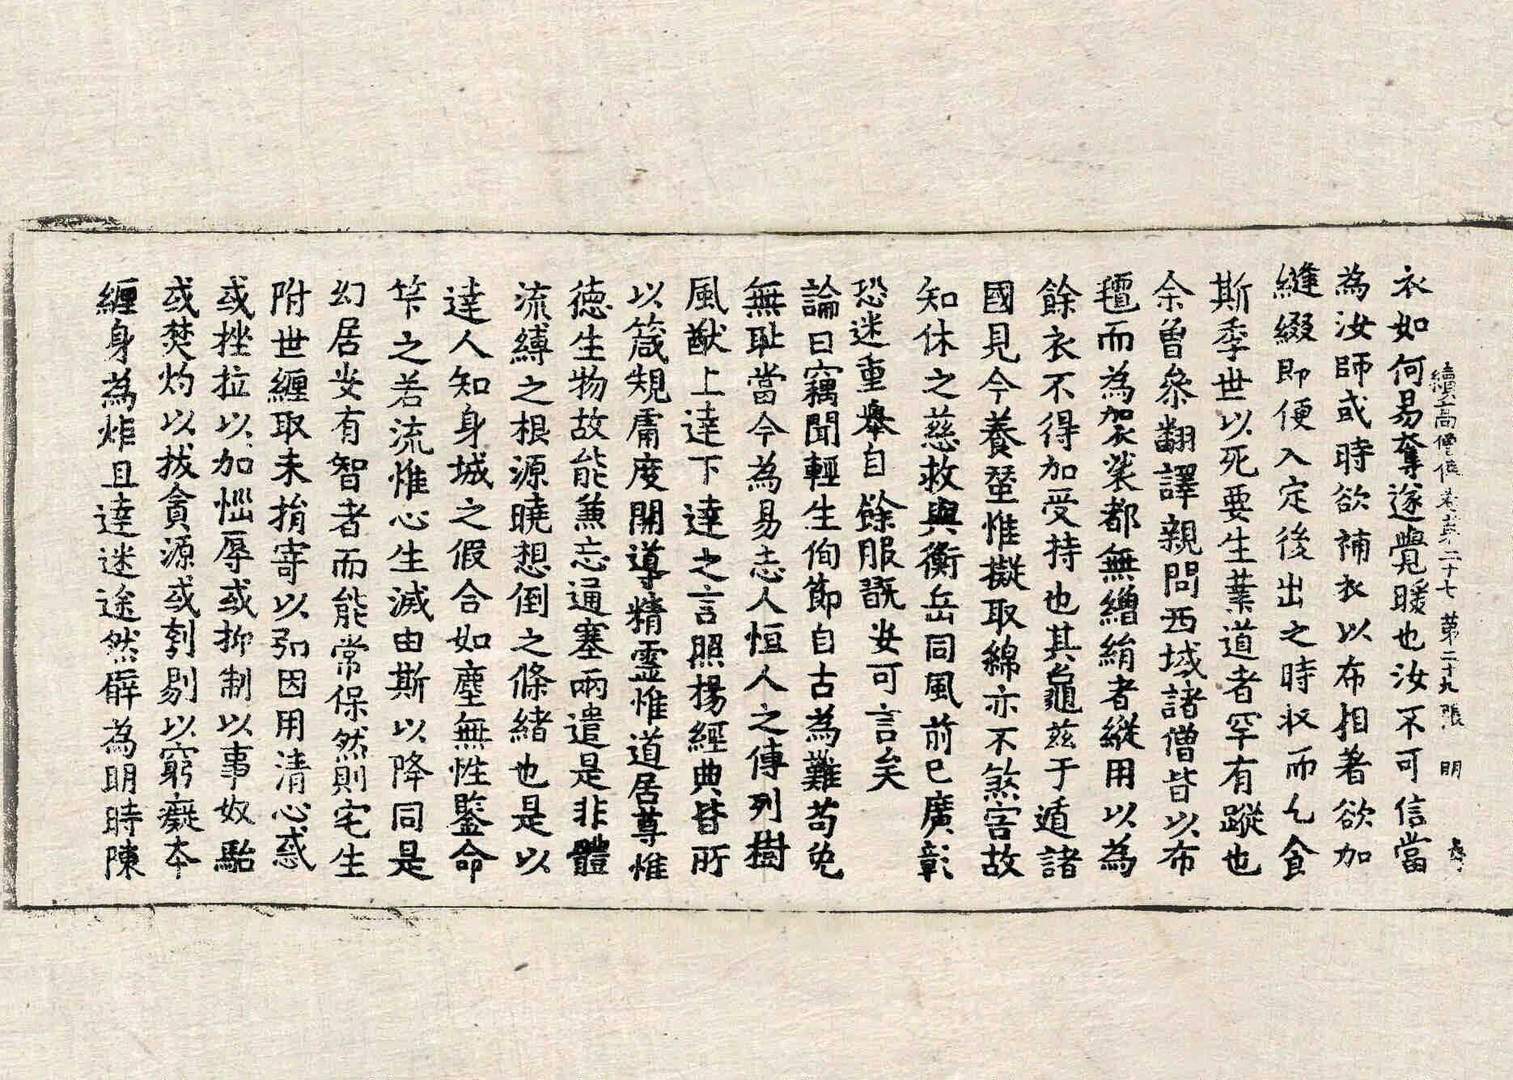 衣如何易奪遂覺暖也汝不可信當
續高僧傳卷第二十七 第二十九張 明
為汝師或時欲補衣以布相著欲加
縫綴即便入定後出之時收而乞食
斯季世以死要生業道者罕有蹤也
余曽叅翻譯親問西域諸僧皆以布
氎而為袈裟都無繒絹者縱用以為
餘衣不得加受持也其龜茲于遁諸
國見今養蚕惟擬取綿亦不煞害故
知休之慈救與衡岳同風前已廣彰
恐迷重舉自餘服翫安可言矣
論曰竊聞輕生徇節自古為難苟免
無耻當今為易志人恒人之傳列樹
風猷上達下達之言照揚經典皆所
以箴規庸度開導精靈惟道居尊惟
德生物故能兼忘通塞兩遣是非體
流縛之根源曉想倒之條緒也是以
達人知身城之假合如塵無性鑒命
笇之若流惟心生滅由斯以降同是
幻居安有智者而能常保然則宅生
附世纏取未捐寄以弘因用清心惑
或挫拉以加惱辱或抑制以事奴駘
或焚灼以拔貪源或刳剔以窮癡本
纏身為炸且達迷途然臂為明時陳